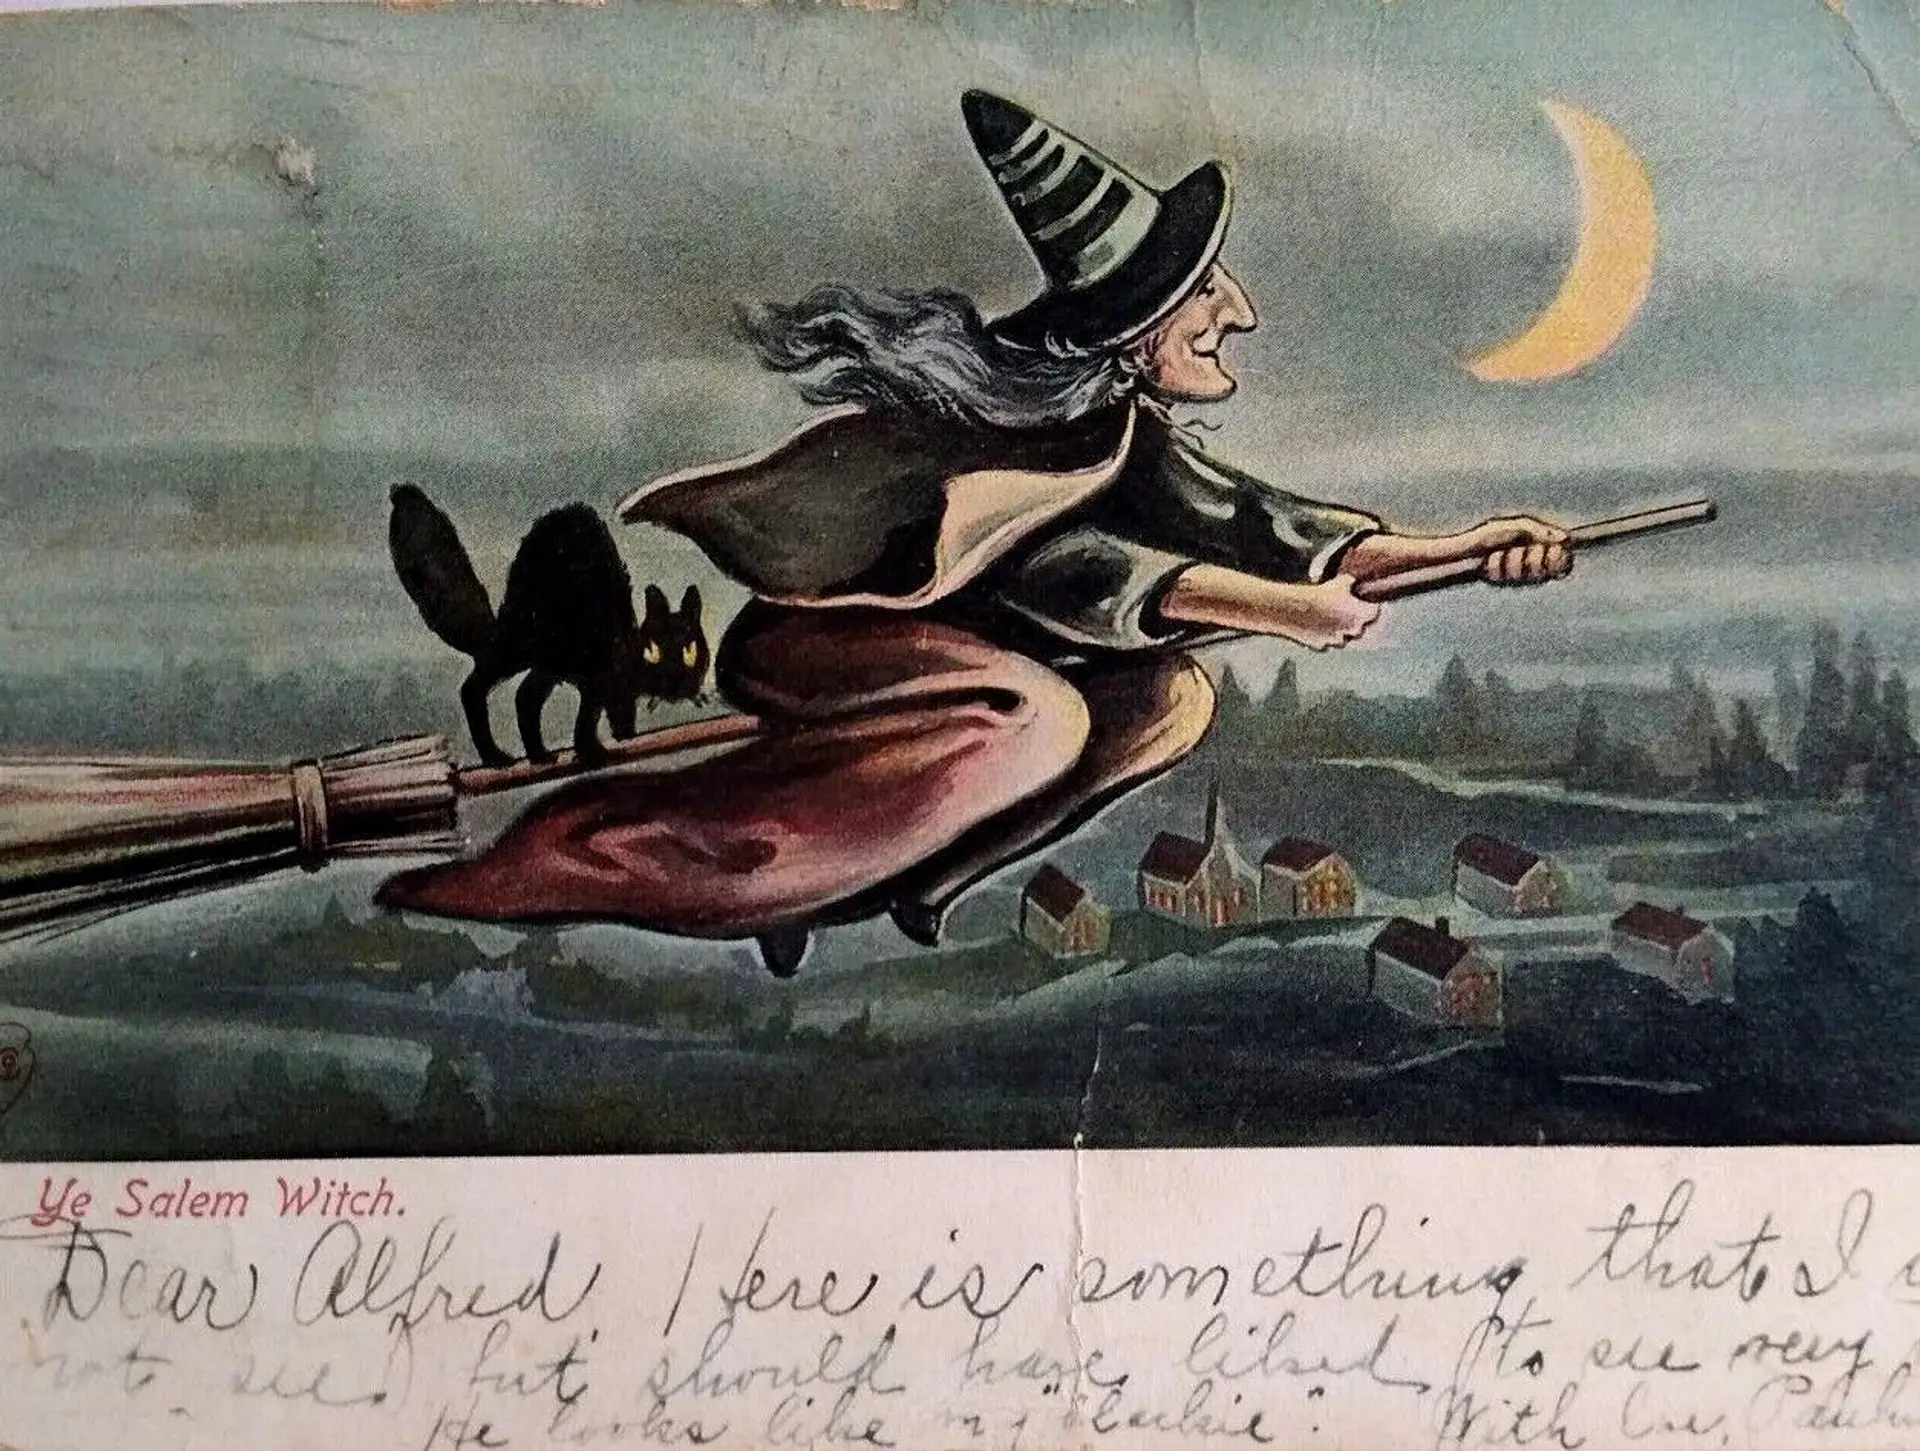 Ye Salem Witch.
Dear Alfred Here is something that I
not see but should have liked to see very
He looks like my "Blackie". With love,